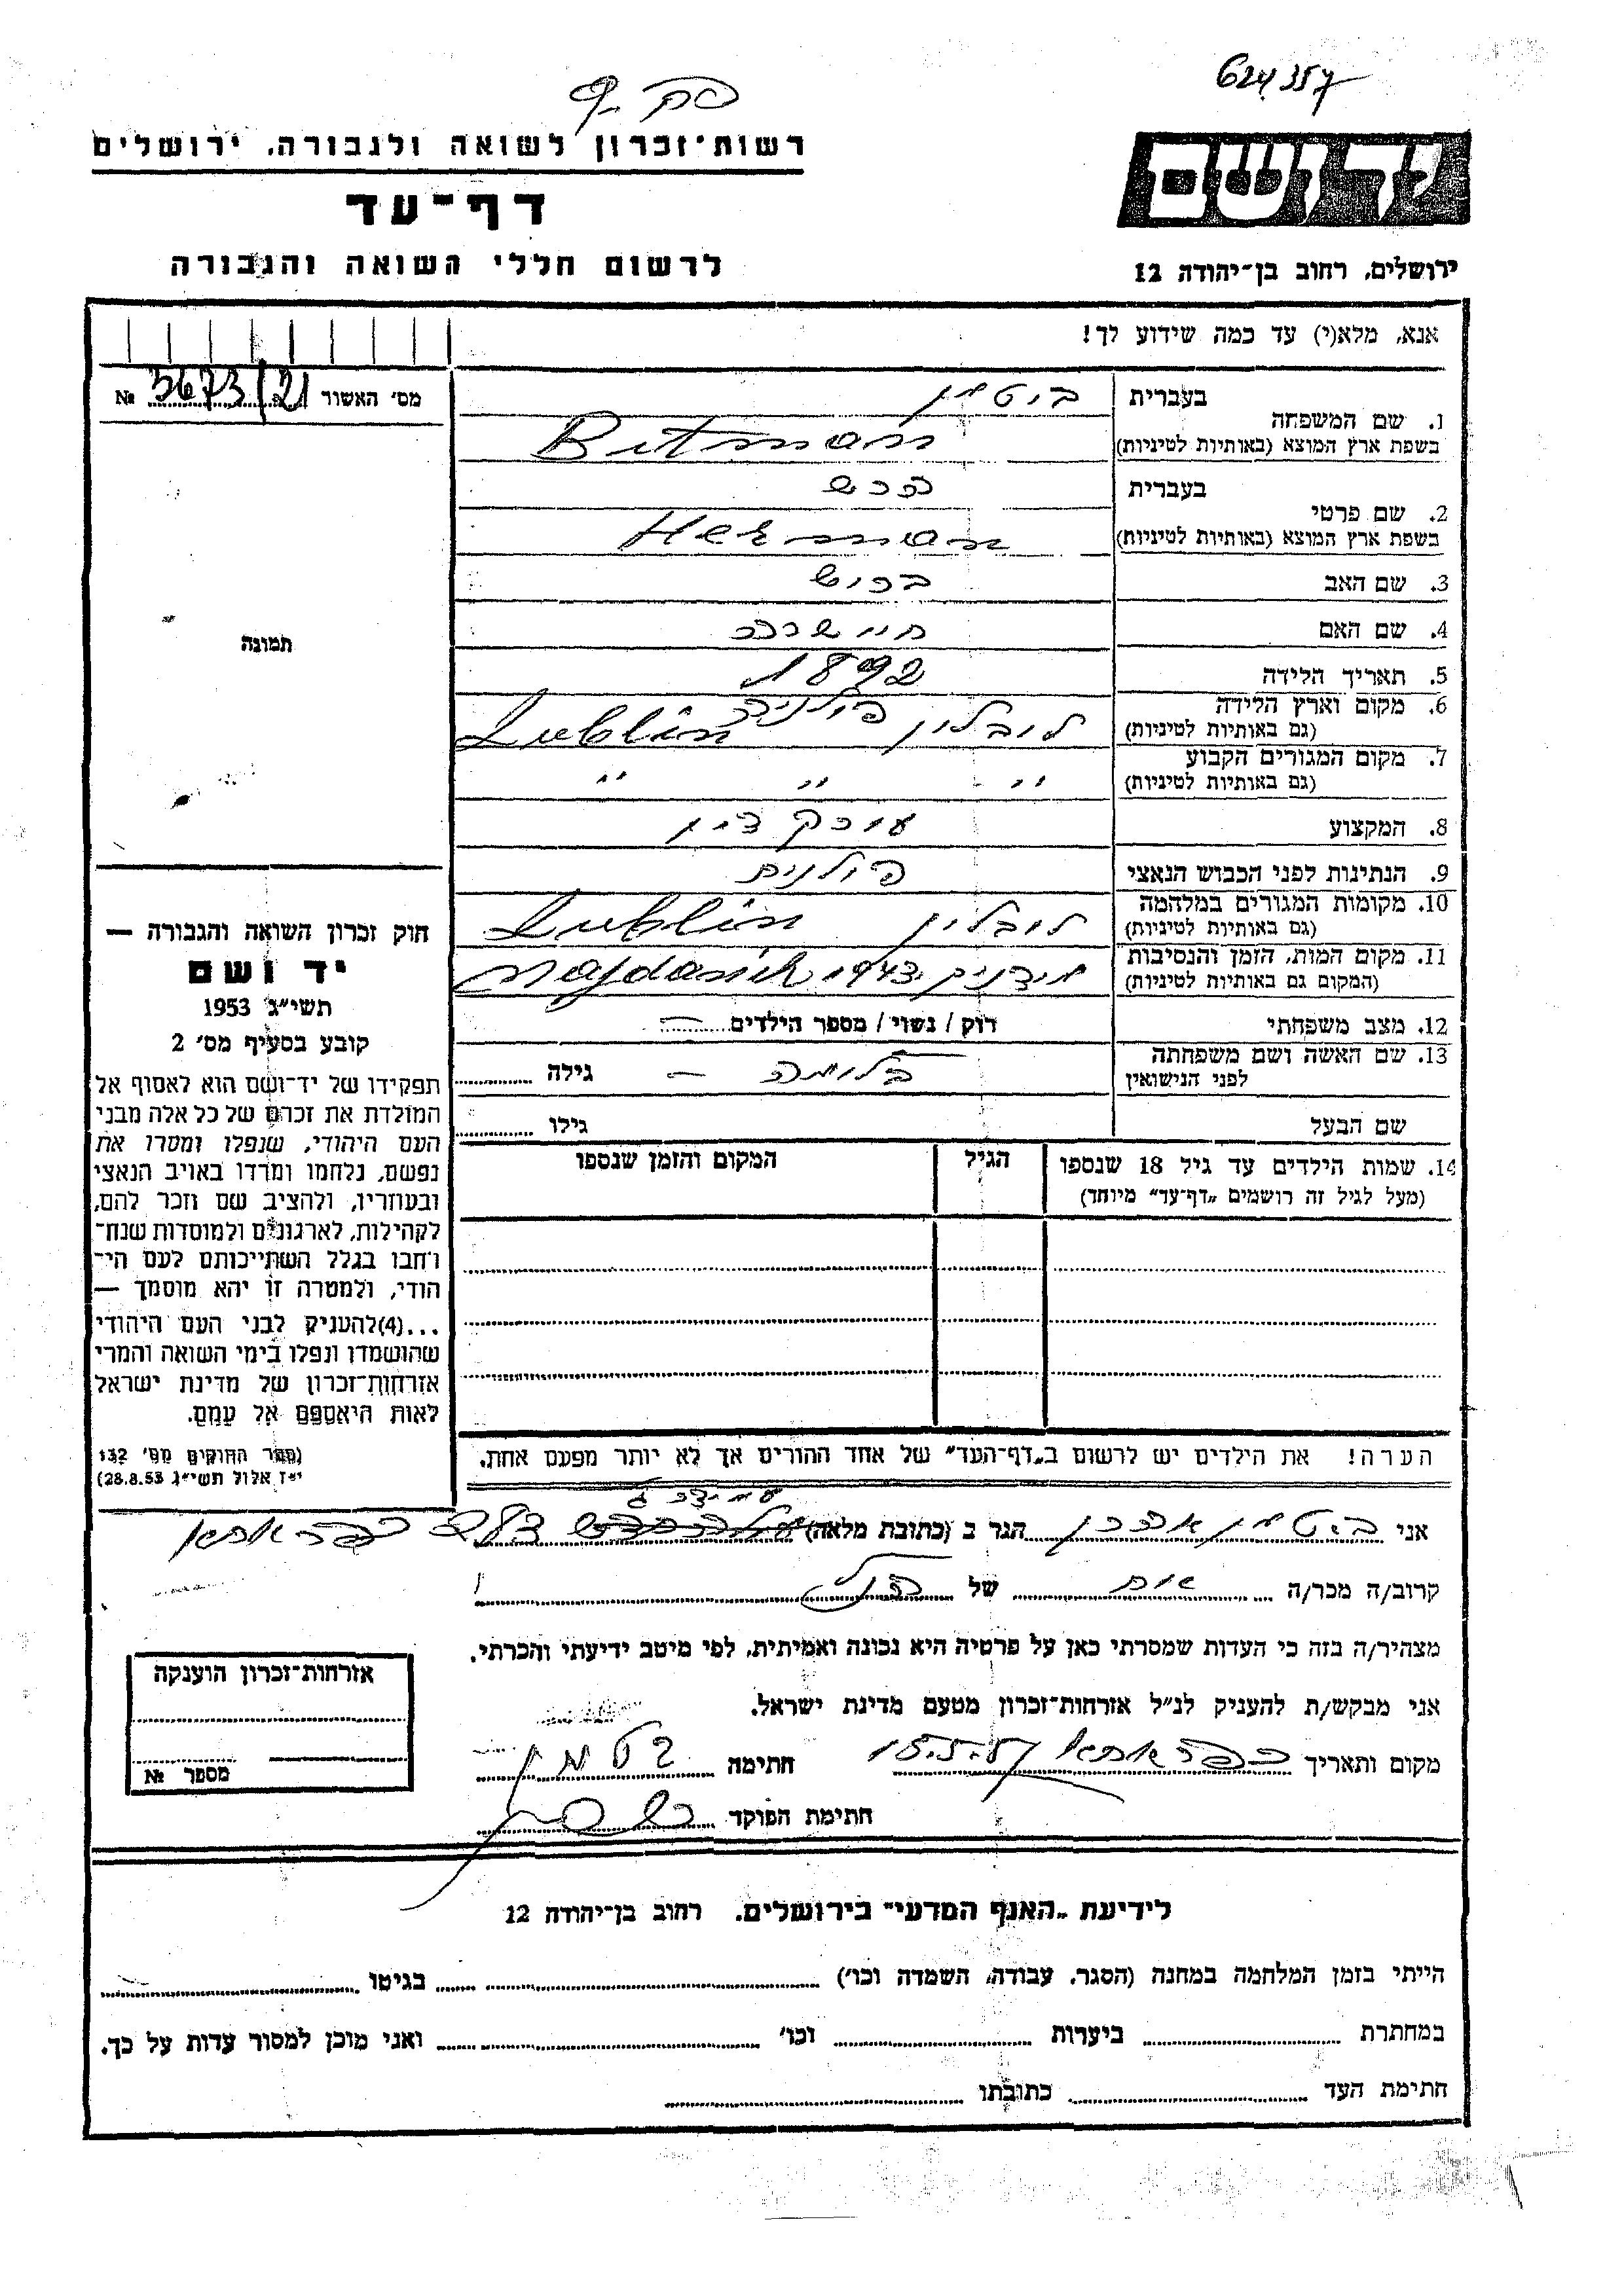 624357
רשות־זכרון לשואה ולגבורה, ירושלים
דף־עד
לרשום חללי השואה והגבורה
ידושם
ירושלים, רחוב בן־יהודה 12
אנא, מלא(י) עד כמה שידוע לך!
מס׳ האשור № 3673/21
1. שם המשפחה בעברית ביטמן
בשפת ארץ המוצא (באותיות לטיניות) Bitman
2. שם פרטי בעברית הרש
בשפת ארץ המוצא (באותיות לטיניות) Herman
3. שם האב ברוש
4. שם האם חיי שרה
5. תאריך הלידה 1892
6. מקום וארץ הלידה (גם באותיות לטיניות) לובלין פולניה Lublin
7. מקום המגורים הקבוע (גם באותיות לטיניות) ״ ״ ״
8. המקצוע עורך דין
9. הנתינות לפני הכבוש הנאצי פולנית
10. מקומות המגורים במלחמה (גם באותיות לטיניות) לובלין Lublin
11. מקום המות, הזמן והנסיבות (המקום גם באותיות לטיניות) מידניק 1943 Majdanik
12. מצב משפחתי רוק / נשוי / מספר הילדים —
13. שם האשה ושם משפחתה לפני הנישואין בלומה — גילה
שם הבעל גילו
14. שמות הילדים עד גיל 18 שנספו (מעל לגיל זה רושמים „דף־עד״ מיוחד) הגיל המקום והזמן שנספו
תמונה
חוק זכרון השואה והגבורה —
יד ושם
תשי״ג 1953
קובע בסעיף מס׳ 2
תפקידו של יד־ושם הוא לאסוף אל
המולדת את זכרם של כל אלה מבני
העם היהודי, שנפלו ומסרו את
נפשם, נלחמו ומרדו באויב הנאצי
ובעוזריו, ולהציב שם וזכר להם,
לקהילות, לארגונים ולמוסדות שנח־
רבו בגלל השתייכותם לעם הי־
הודי, ולמטרה זו יהא מוסמך —
...(4)להעניק לבני העם היהודי
שהושמדו ונפלו בימי השואה והמרי
אזרחות־זכרון של מדינת ישראל
לאות היאספם אל עמם.
(ספר החוקים מס׳ 132
י״ז אלול תשי״ג 28.8.53)
הערה! את הילדים יש לרשום ב„דף־העד״ של אחד ההורים אך לא יותר מפעם אחת.
אני ביטמן אהרן הגר ב (כתובת מלאה) כפר אתא
קרוב/ה מכר/ה של
מצהיר/ה בזה כי העדות שמסרתי כאן על פרטיה היא נכונה ואמיתית, לפי מיטב ידיעתי והכרתי.
אני מבקש/ת להעניק לנ״ל אזרחות־זכרון מטעם מדינת ישראל.
מקום ותאריך כפר אתא חתימה בטמן
חתימת הפוקד
אזרחות־זכרון הוענקה
מספר №
לידיעת „האגף המדעי״ בירושלים, רחוב בן־יהודה 12
הייתי בזמן המלחמה במחנה (הסגר, עבודה, השמדה וכו׳) בגיטו
במחתרת ביערות וכו׳ ואני מוכן למסור עדות על כך.
חתימת העד כתובתו